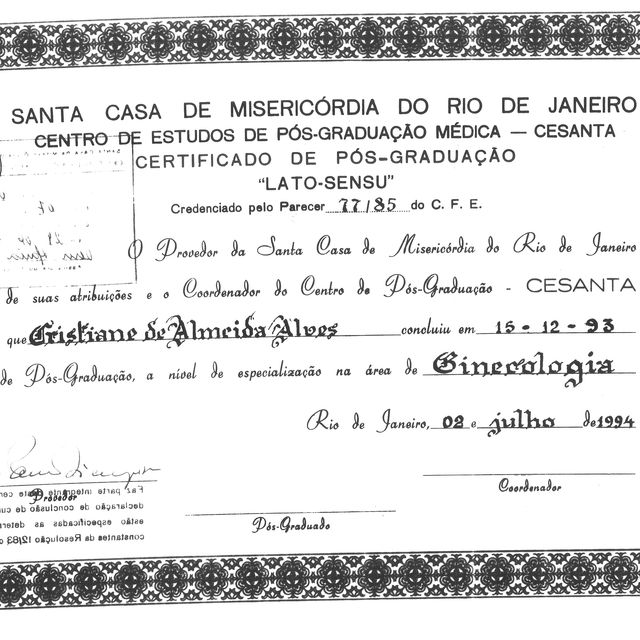 SANTA CASA DE MISERICÓRDIA DO RIO DE JANEIRO
CENTRO DE ESTUDOS DE PÓS-GRADUAÇÃO MÉDICA — CESANTA
CERTIFICADO DE PÓS-GRADUAÇÃO
"LATO-SENSU"
Credenciado pelo Parecer 77/85 do C. F. E.
O Provedor da Santa Casa de Misericórdia do Rio de Janeiro
de suas atribuições e o Coordenador do Centro de Pós-Graduação - CESANTA
que Cristiane de Almeida Alves concluiu em 15-12-93
de Pós-Graduação, a nível de especialização na área de Ginecologia
Rio de Janeiro, 02 e julho de 1994
Provedor
Coordenador
Pós-Graduado
Faz parte integrante deste cer
declaração de conclusão de cu
estão especificadas as determ
constantes da Resolução 12/83